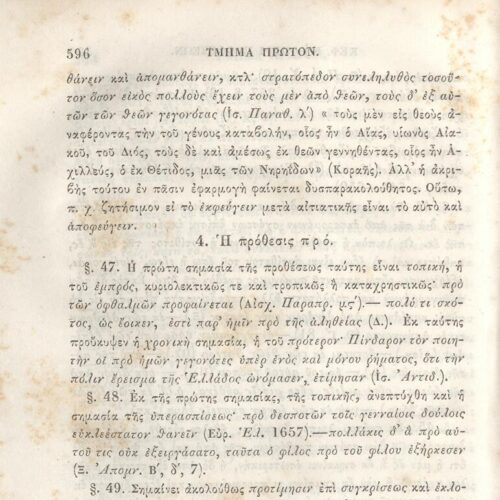 596 ΤΜΗΜΑ ΠΡΩΤΟΝ.
θάνειν καὶ ἀπομανθάνειν, κτλ· στρατόπεδον συνεληλυθὸς τοσοῦ-
τον ὅσον εἰκὸς πολλοὺς ἔχειν τοὺς μὲν ἀπὸ θεῶν, τοὺς δ’ ἐξ αὐ-
τῶν τῶν θεῶν γεγονότας (Ἰσ. Παναθ. λ′) « τοὺς μὲν εἰς θεοὺς ἀ-
ναφέροντας τὴν τοῦ γένους καταβολήν, οἷος ἦν ὁ Αἴας, υἱωνὸς Αἰα-
κοῦ, τοῦ Διός, τοὺς δὲ καὶ ἀμέσως ἐκ θεῶν γεννηθέντας, οἷος ἦν Ἀ-
χιλλεύς, ὁ ἐκ Θέτιδος, μιᾶς τῶν Νηρηΐδων» (Κοραῆς). Ἀλλ’ ἡ ἀκρι-
βὴς τούτου ἐν πᾶσιν ἐφαρμογὴ φαίνεται δυσπαρακολούθητος. Οὕτω,
π. χ. ζητήσιμον εἰ τὸ ἐκφεύγειν μετὰ αἰτιατικῆς εἶναι τὸ αὐτὸ καὶ
ἀποφεύγειν.
4. Ἡ πρόθεσις πρό.
§. 47. Ἡ πρώτη σημασία τῆς προθέσεως ταύτης εἶναι τοπική, ἡ
τοῦ ἐμπρός, κυριολεκτικῶς τε καὶ τροπικῶς ἢ καταχρηστικῶς· πρὸ
τῶν ὀφθαλμῶν προφαίνεται (Αἰσχ. Παραπρ. μς′).— πολύ τι σκό-
τος, ὡς ἔοικεν, ἐστὶ παρ’ ἡμῖν πρὸ τῆς ἀληθείας (Δ.). Ἐκ ταύτης
προὔκυψεν ἡ χρονικὴ σημασία, ἡ τοῦ πρότερον· Πίνδαρον τὸν ποιη-
τὴν οἱ πρὸ ἡμῶν γεγονότες ὑπὲρ ἑνὸς καὶ μόνου ῥήματος, ὅτι τὴν
πόλιν ἔρεισμα τῆς Ἑλλάδος ὠνόμασεν, ἐτίμησαν (Ἰσ. Ἀντιδ.).
§. 48. Ἐκ τῆς πρώτης σημασίας, τῆς τοπικῆς, ἀνεπτύχθη καὶ ἡ
σημασία τῆς ὑπερασπίσεως· πρὸ δεσποτῶν τοῖς γενναίοις δούλοις
εὐκλεέστατον θανεῖν (Εὐρ. Ἑλ. 1657).—πολλάκις δ’ ἃ πρὸ αὑ-
τοῦ τις οὐκ ἐξειργάσατο, ταῦτα ὁ φίλος πρὸ τοῦ φίλου ἐξήρκεσεν
(Ξ. Ἀπομν. Β′, δ′, 7).
§. 49. Σημαίνει ἀκολούθως προτίμησιν ἐπὶ συγκρίσεως καὶ ἐκλο-